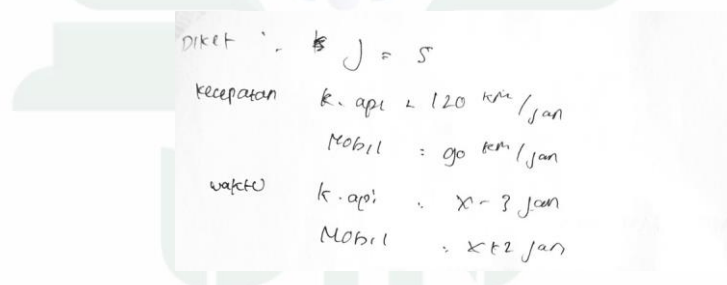 Diket : J = S
Kecepatan K. api = 120 km/jam
Mobil : 90 km/jam
waktu K. api : x - 3 jam
Mobil : x + 2 jam